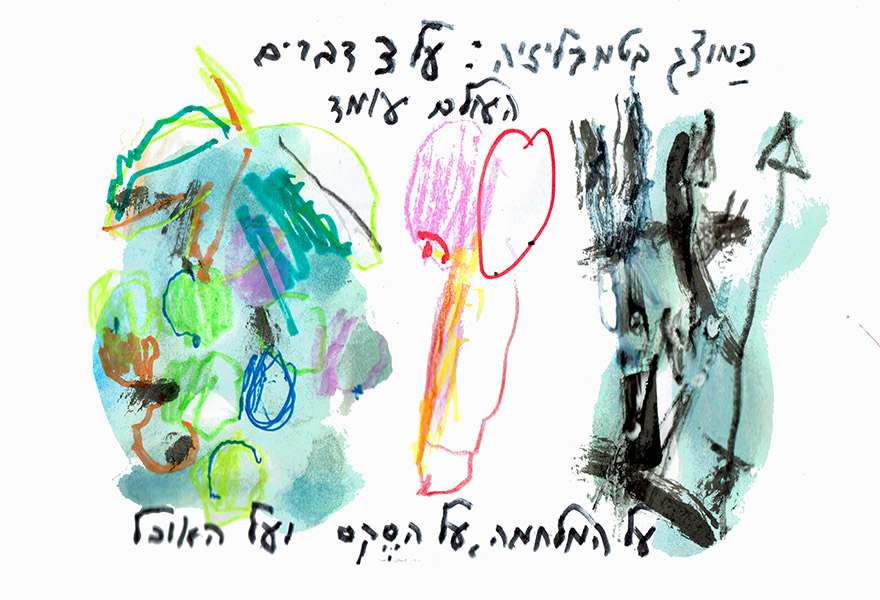 כַּמוצג בטמבליזיה: על 3 דברים
העולם עומד
על המלחמה, על הסֶקס ועל האוכל